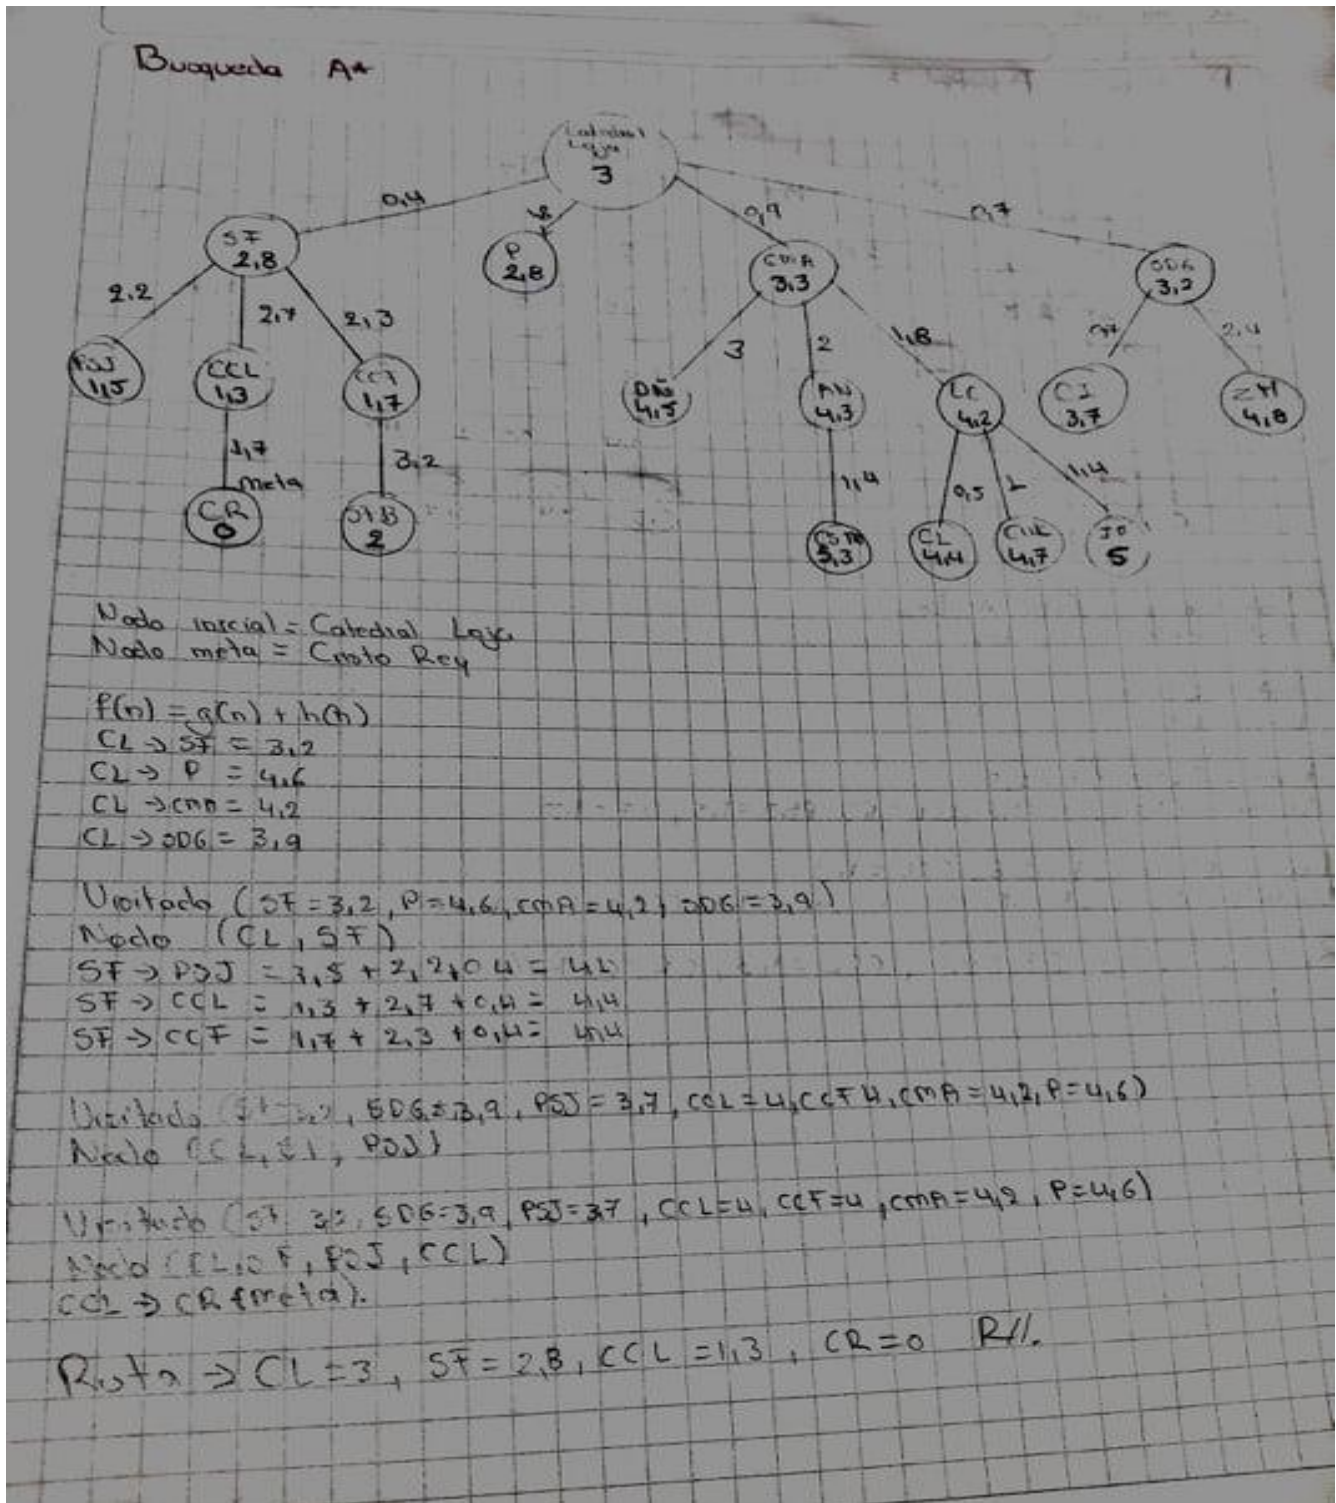 Busqueda A*
Catedral
Loja
3
0,4
0,9
0,7
SF
2,8
P
2,8
CMA
3,3
SDG
3,2
2.2
2,7
2,3
3
2
1,8
2,4
PSJ
1,5
CCL
1,3
CCF
1,7
4,5
AN
4,3
LC
4,2
CI
3,7
ZH
4,8
1,7
meta
3,2
1,4
0,5
1,4
CR
0
2
5,3
CL
4,4
4,7
JO
5
Nodo inicial = Catedral Loja
Nodo meta = Cristo Rey
f(n) = g(n) + h(n)
CL → SF = 3,2
CL → P = 4,6
CL → CMA = 4,2
CL → SDG = 3,9
Visitado (SF = 3,2, P = 4,6, CMA = 4,2, SDG = 3,9)
Nodo (CL, SF)
SF → PSJ = 2,2 0,4 =
SF → CCL = 1,3 + 2,7 + 0,4 = 4,4
SF → CCF = 1,7 + 2,3 + 0,4 = 4,4
Visitado SDG = 3,9, PSJ = 3,7, CCL = 4, CCF 4, CMA = 4,2, P = 4,6)
Nodo (CL, PSJ)
Visitado (SF 3,2, SDG = 3,9, PSJ = 3,7, CCL = 4, CCF = 4, CMA = 4,2, P = 4,6)
Nodo (CL, SF, PSJ, CCL)
CCL → CR (meta).
Ruta → CL = 3, SF = 2,8, CCL = 1,3, CR = 0 R//.